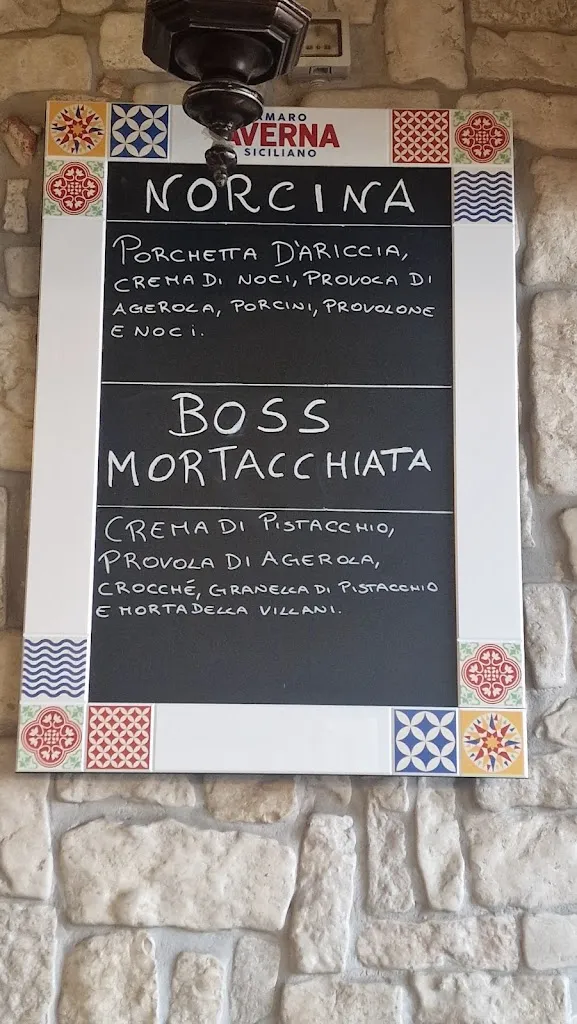 AMARO
AVERNA
SICILIANO
NORCINA
PORCHETTA D'ARICCIA,
CREMA DI NOCI, PROVOLA DI
AGEROLA, PORCINI, PROVOLONE
E NOCI.
BOSS
MORTACCHIATA
CREMA DI PISTACCHIO,
PROVOLA DI AGEROLA,
CROCCHÉ, GRANELLA DI PISTACCHIO
E MORTADELLA VILLANI.